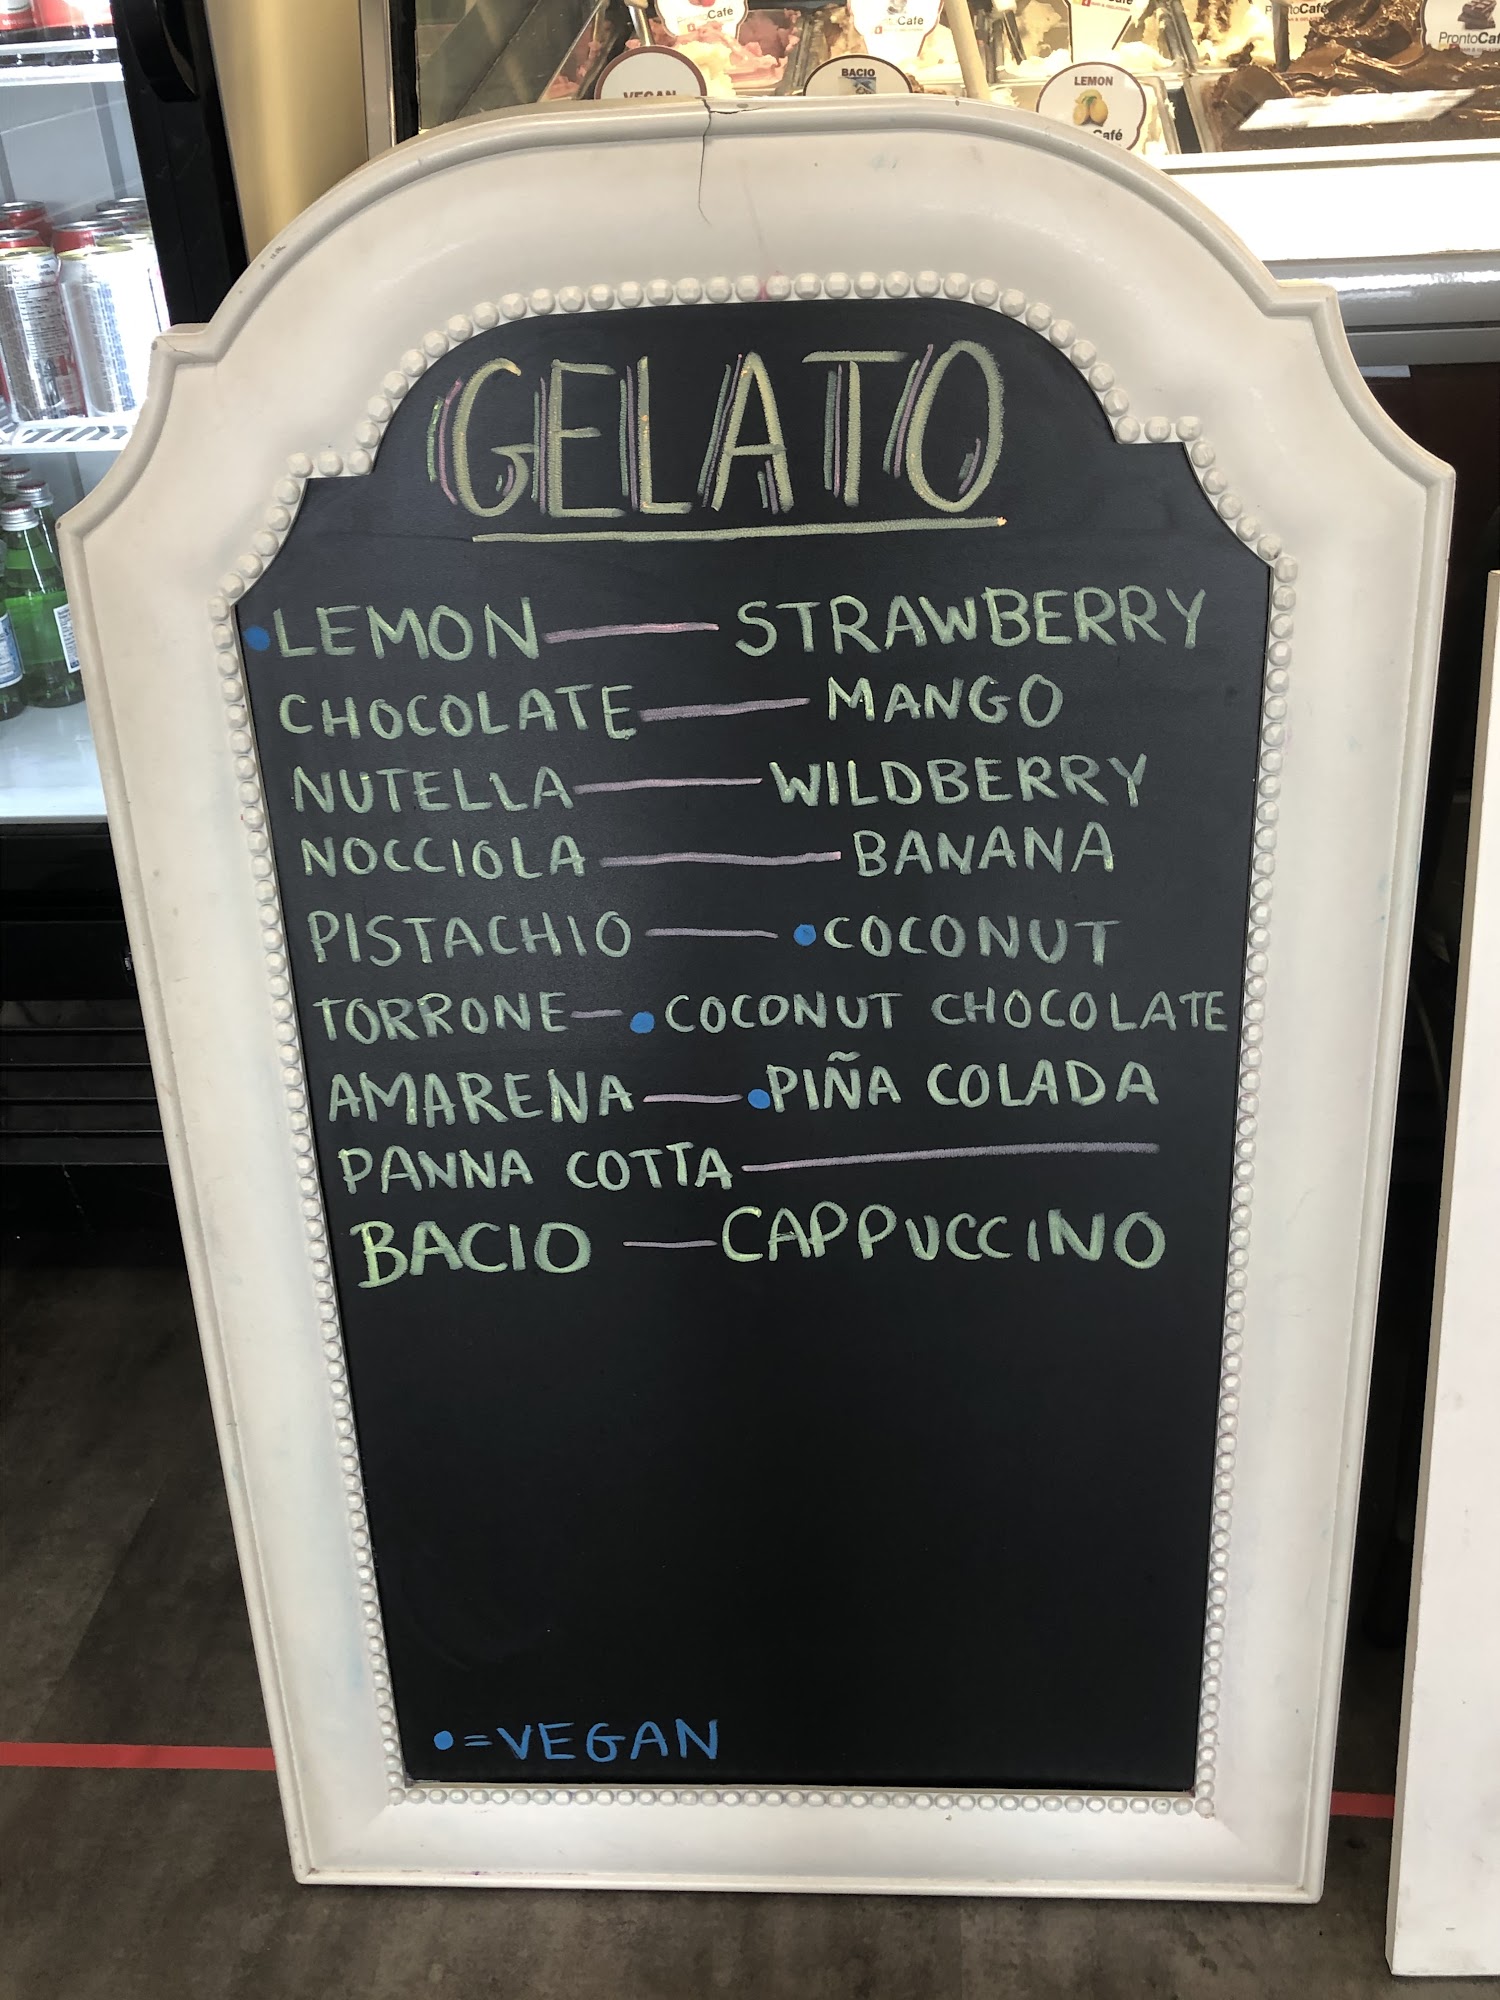 Café
Café
Café
ProntoCafé
ProntoCafé
VEGAN
BACIO
LEMON
Café
GELATO
•LEMON — STRAWBERRY
CHOCOLATE — MANGO
NUTELLA — WILDBERRY
NOCCIOLA — BANANA
PISTACHIO — •COCONUT
TORRONE — •COCONUT CHOCOLATE
AMARENA — •PIÑA COLADA
PANNA COTTA —
BACIO — CAPPUCCINO
•=VEGAN